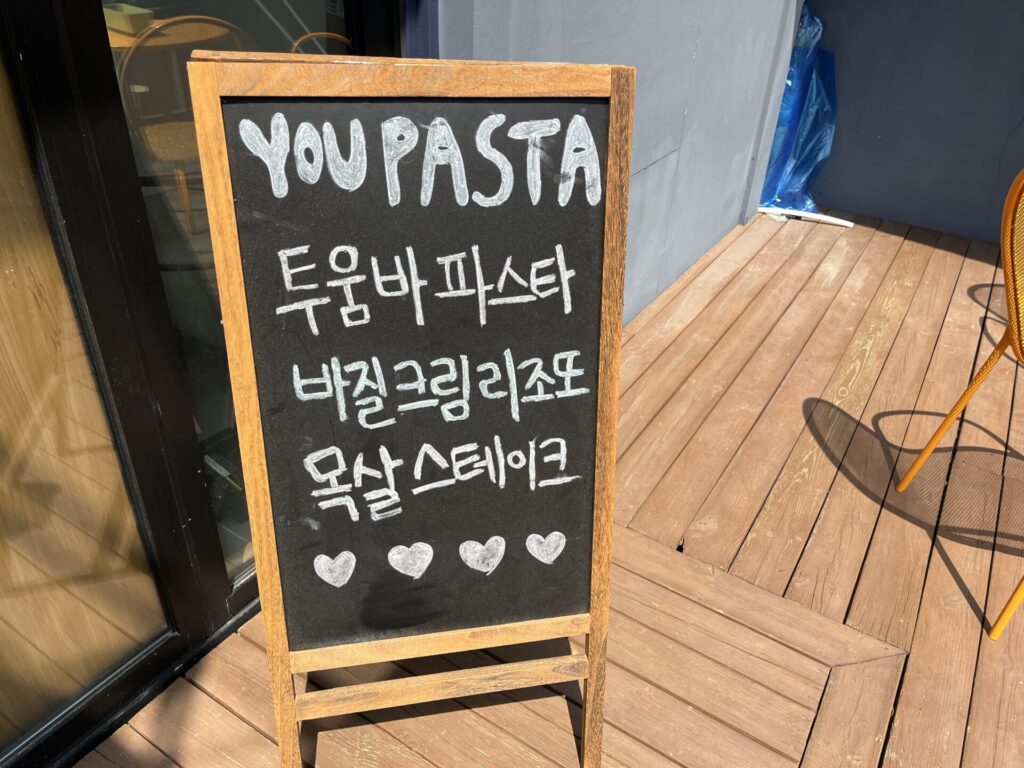 YOU PASTA
투움바 파스타
바질크림리조또
목살 스테이크